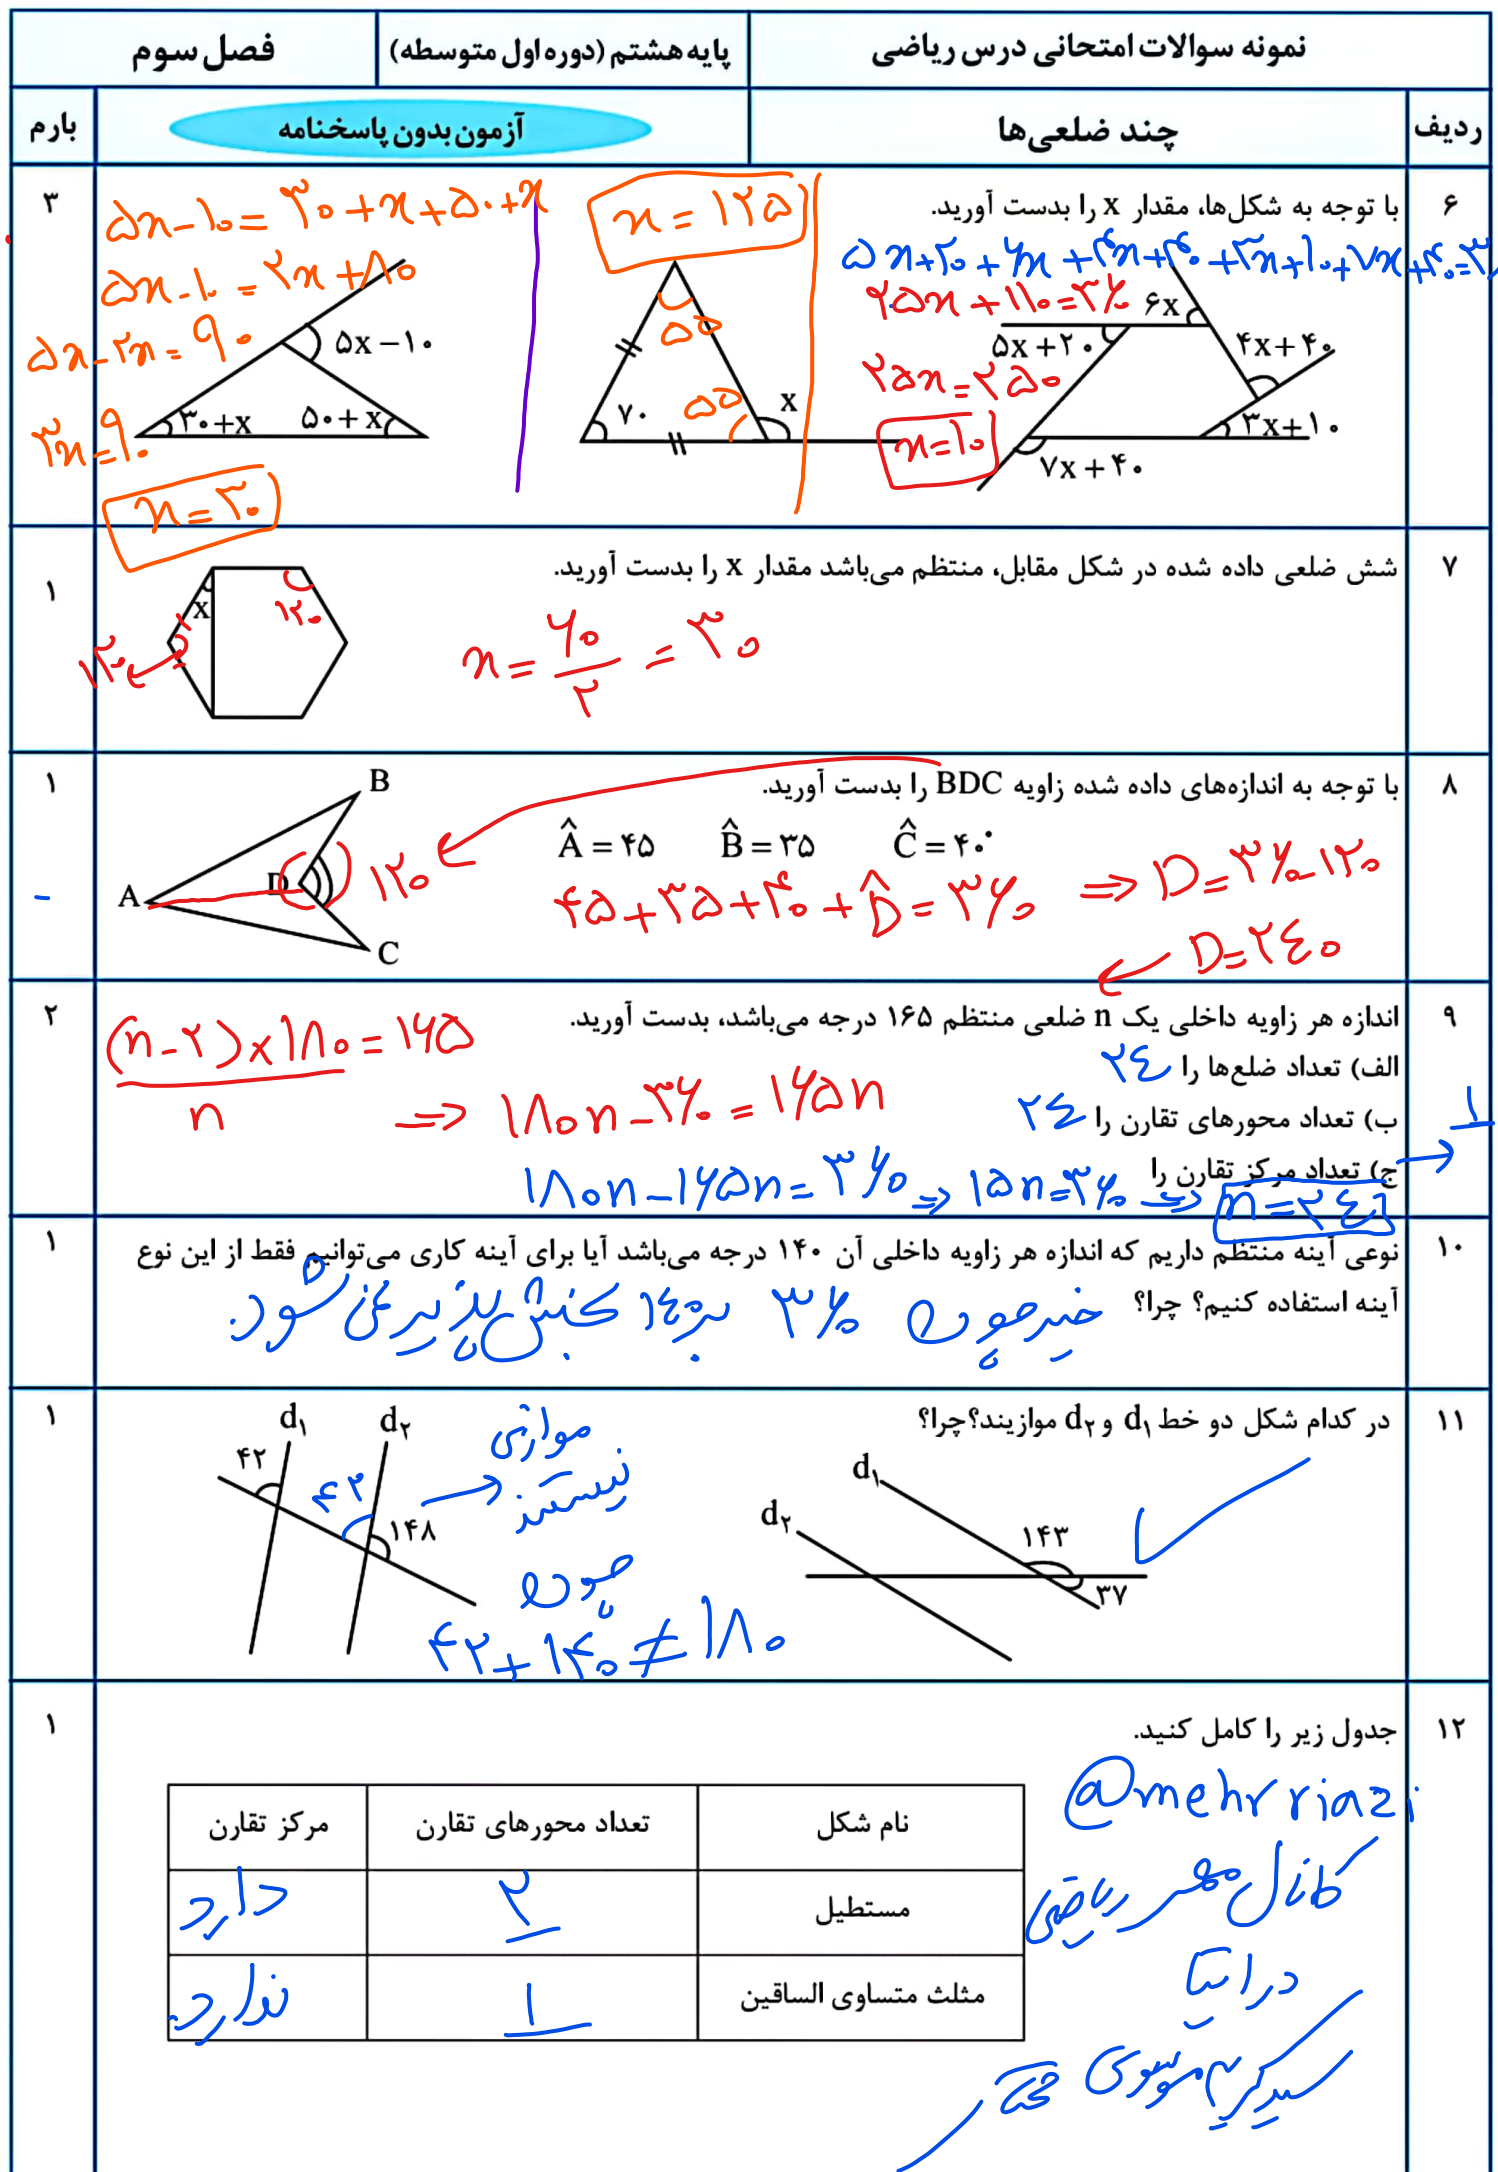 نمونه سوالات امتحانی درس ریاضی
پایه هشتم (دوره اول متوسطه)
فصل سوم
ردیف
چند ضلعی‌ها
آزمون بدون پاسخنامه
بارم
۶
با توجه به شکل‌ها، مقدار x را بدست آورید.
۳
5x+20+6x+4x+40+3x+10+7x+40=3
۲۵x+۱۱۰=۳۶۰
۲۵x=۲۵۰
x=۱۰
۶x
۵x+۲۰
۴x+۴۰
۳x+۱۰
۷x+۴۰
x=۱۲۵
۵۵
۷۰
۵۵
x
۵x-۱۰=۳۰+x+۵۰+x
۵x-۱۰=۲x+۸۰
۵x-۲x=۹۰
۳x=۹۰
x=۳۰
۵x-۱۰
۳۰+x
۵۰+x
۷
شش ضلعی داده شده در شکل مقابل، منتظم می‌باشد مقدار x را بدست آورید.
۱
x
۱۲۰
۱۲۰
x=۶۰/۲=۳۰
۸
با توجه به اندازه‌های داده شده زاویه BDC را بدست آورید.
۱
Â = ۴۵ B̂ = ۳۵ Ĉ = ۴۰°
۴۵+۳۵+۴۰+D̂=۳۶۰ ⇒ D=۳۶۰-۱۲۰
D=۲۴۰
A
B
C
D
۱۲۰
۹
اندازه هر زاویه داخلی یک n ضلعی منتظم ۱۶۵ درجه می‌باشد، بدست آورید.
۲
الف) تعداد ضلع‌ها را ۲۴
ب) تعداد محورهای تقارن را ۲۴
ج) تعداد مرکز تقارن را → ۱
(n-۲)×۱۸۰/n=۱۶۵
⇒ ۱۸۰n-۳۶۰=۱۶۵n
۱۸۰n-۱۶۵n=۳۶۰ ⇒ ۱۵n=۳۶۰ ⇒ n=۲۴
۱۰
نوعی آینه منتظم داریم که اندازه هر زاویه داخلی آن ۱۴۰ درجه می‌باشد آیا برای آینه کاری می‌توانیم فقط از این نوع
آینه استفاده کنیم؟ چرا؟
۱
خیر چون ۳۶۰ بر ۱۴۰ بخش پذیر نمی شود.
۱۱
در کدام شکل دو خط d۱ و d۲ موازیند؟چرا؟
۱
d۱
d۲
۱۴۳
۳۷
d۱
d۲
۴۲
۴۲
۱۴۸
موازی
نیستند
چون
۴۲+۱۴۰≠۱۸۰
۱۲
جدول زیر را کامل کنید.
۱
نام شکل
تعداد محورهای تقارن
مرکز تقارن
مستطیل
۲
دارد
مثلث متساوی الساقین
۱
ندارد.
@mehrriazi
کانال مهر ریاضی
در ایتا
سید کریم موسوی